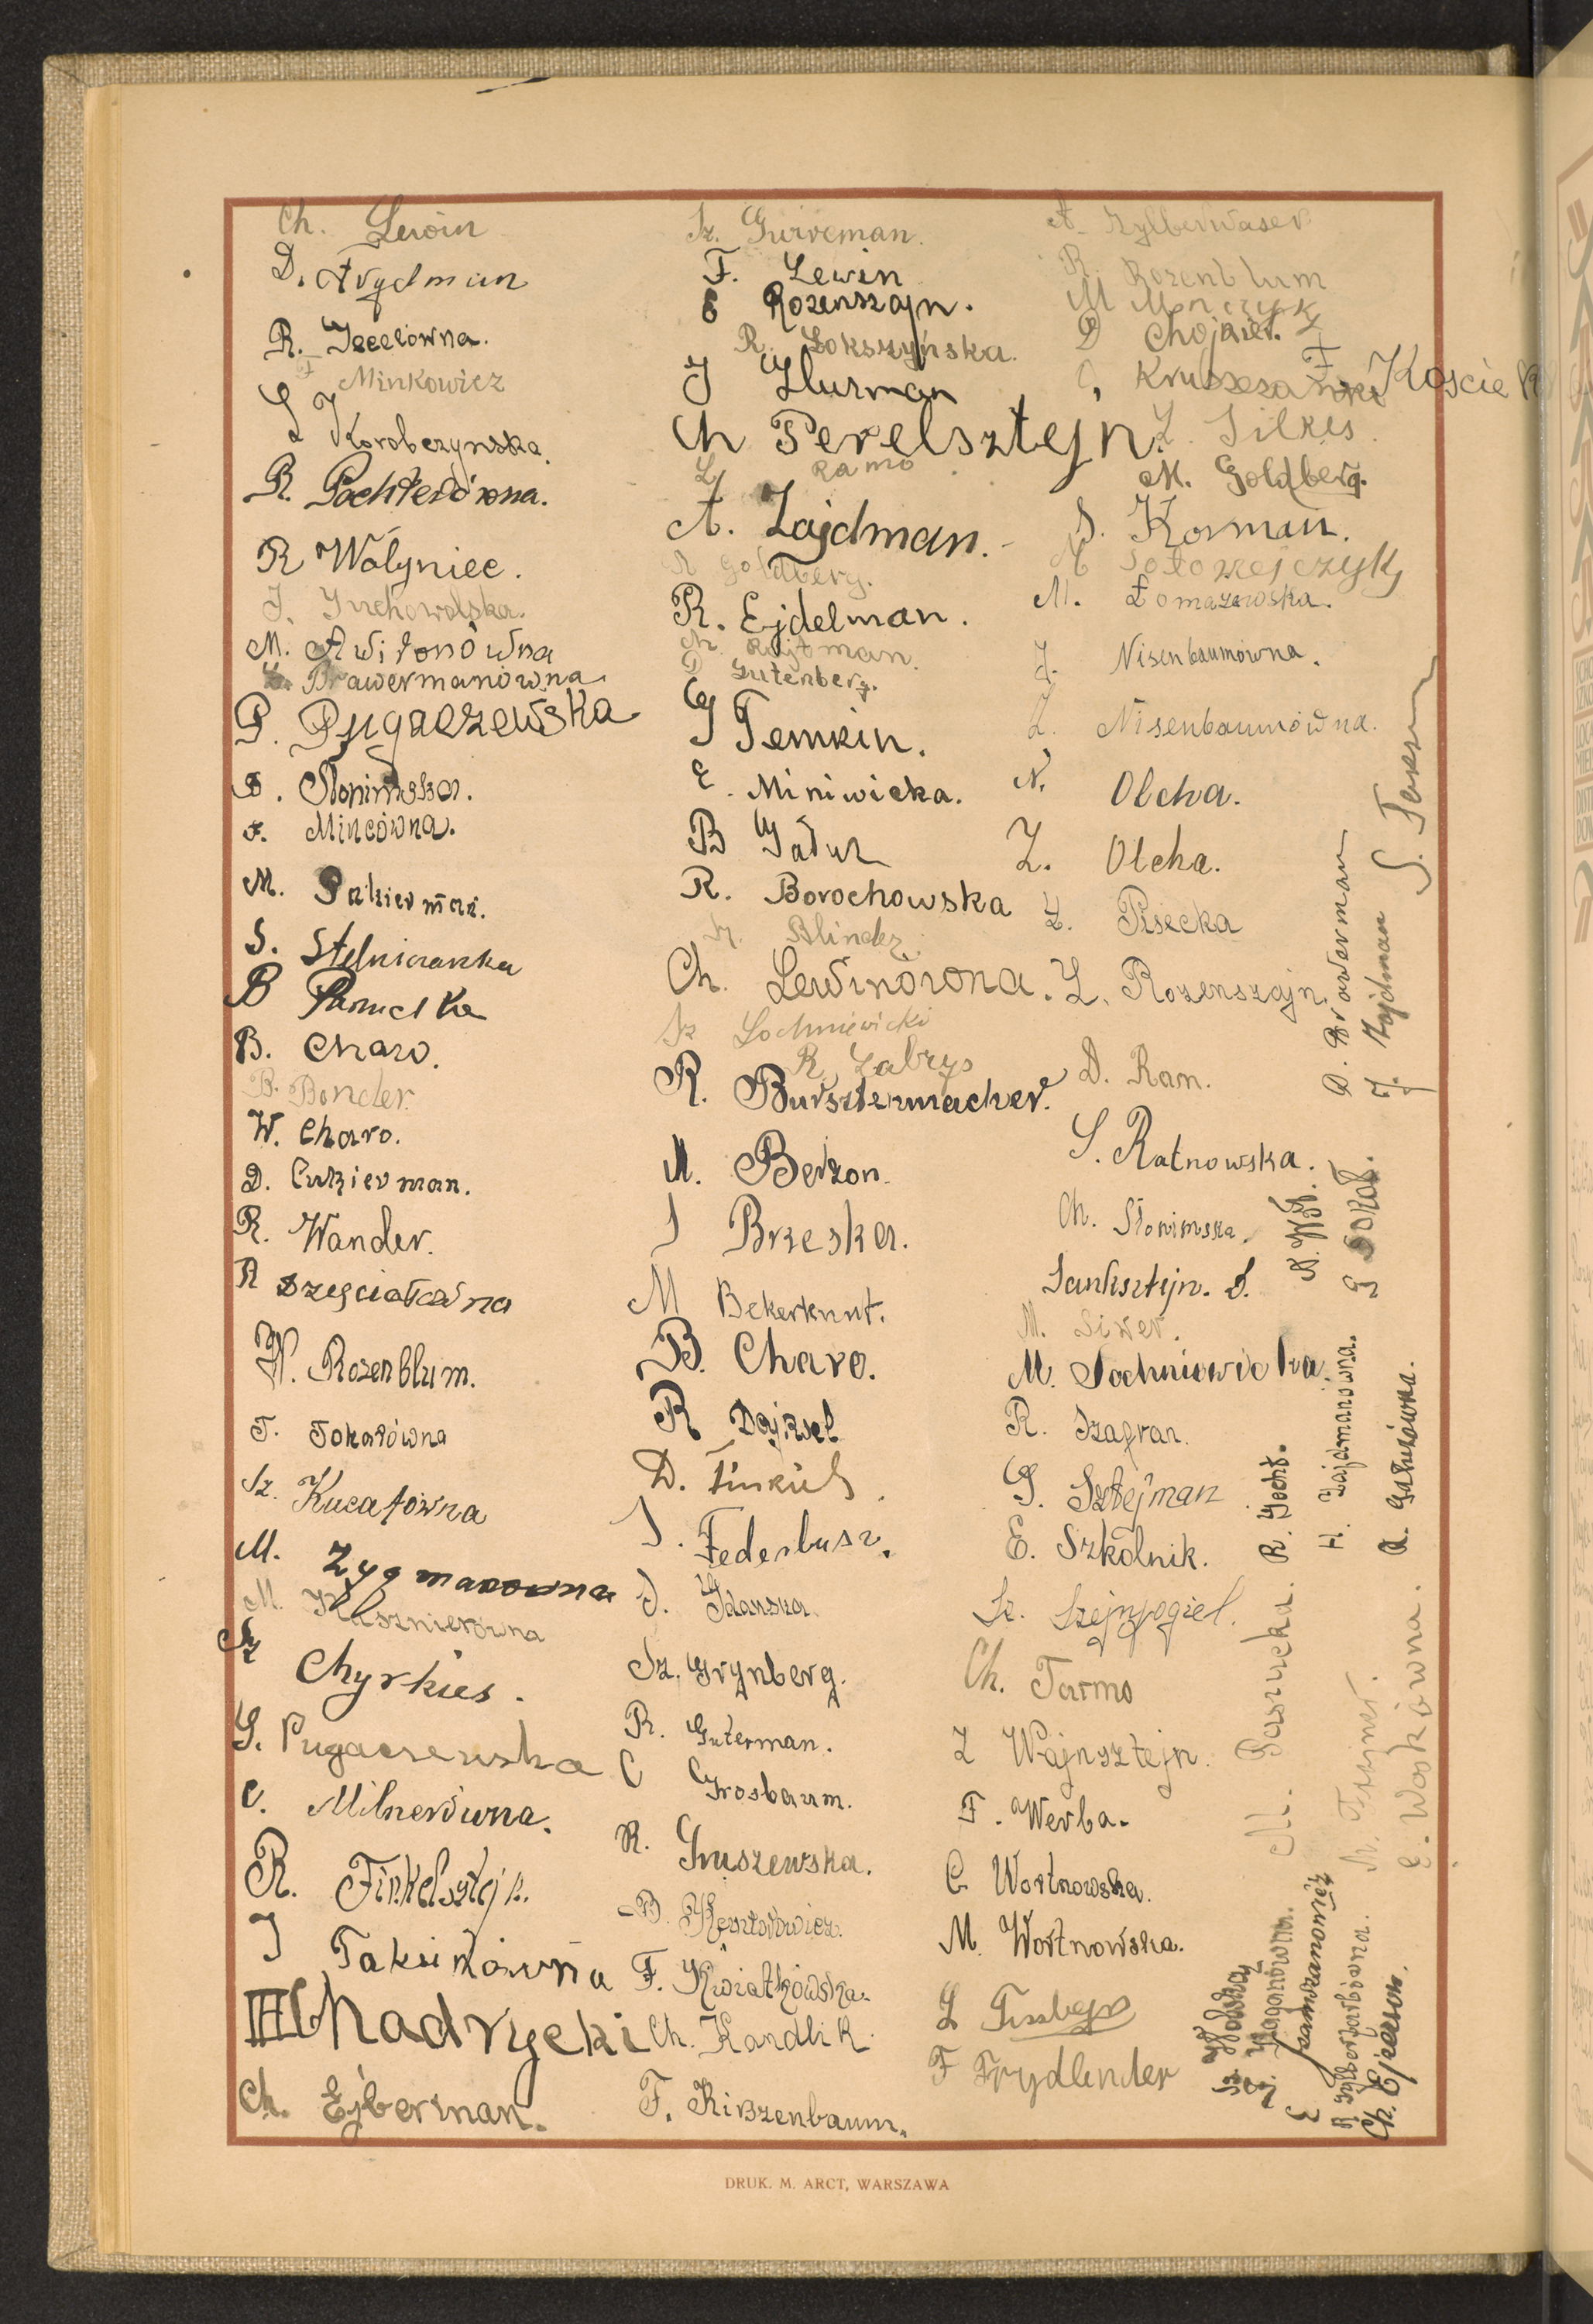 Ch. Lewin
D. Frydman
R. Icelowna.
F Minkowicz
L J Korobczynska.
R. Pochterówna.
R Wolyniec.
J. Juchowolska.
M. Awiłonówna
Brawermanówna
P. Pugaczewska
F. Słonimska.
F. Mincówna.
M.
S. Stelniczanka
B
B. Charo.
B. Bonder.
W. Charo.
D. Cukierman.
R. Wander.
R Szesciałówna
W. Rozenblum.
T. Tokarówna
Sz. Kucałówna
M. Zygmanowna
M. Klasznierówna
Sz Chyrkies.
G. Pugaczewska
C. Milnerówna.
R. Finkelsztejn.
J Taksinówna
Chadrycki
Ch. Ejberman.
Sz. Gurveman.
F. Lewin
E Rozenszajn.
R. Lokszyńska.
J Hurman
Ch Perelsztejn.
L Ramo
A. Zajdman.
R Goldberg.
R. Ejdelman.
Ch. Rajtman.
D Gutenberg.
G Temkin.
E. Miniwicka.
B Gatuz
R. Borochowska
Sz. Blinder
Ch. Lewinówna.
Sz Sochniewicki
R Zabrys
R. Bursztynmacher.
M. Berzon.
J Brzeska.
M Bekerkunt.
B. Charo.
R Dajksel
D. Finkiel
J. Federbusz.
J. Idanska.
Sz. Grynberg.
R. Guterman.
C Grosbaum.
R. Gruszewska.
B.
F. Kwiatkowska.
Ch. Kandlik.
F. Kirszenbaum.
A. Zylberwaser
R. Rozenblum
M Monczyk
D Chojnicl.
Kruszezanski
F Kościel
L. Silkes.
M. Goldberg.
S. Korman.
M Sołowejczyk
M. Łomazowska.
J. Nisenbaumówna.
L. Nisenbaumówna.
N. Olcha.
Z. Olcha.
L. Risecka
L. Rozenszajn.
D. Ran.
S. Ratnowska.
Ch. Słonimska.
Sanksztejn. S.
M. Siwer.
M. Sochniewicka.
R. Szafran.
G. Sztejman
E. Szkolnik.
Sz. Szejnfogiel.
Ch. Tarmo
L Wajnsztejn.
F. Werba.
C Wortnowska.
M. Wortnowska.
L
F Frydlender
D. Brawerman
J. Zajdman
S.
G Sokoł.
R. Jocht.
H. Zajdmanówna.
A. Galusówna.
M. Paszucka.
N.
C. Woskówna.
Sz.
Z. Kaganówna.
E Jandzanowicz
R Sylberfarbówna.
Ch. Ejzerson.
DRUK. M. ARCT, WARSZAWA